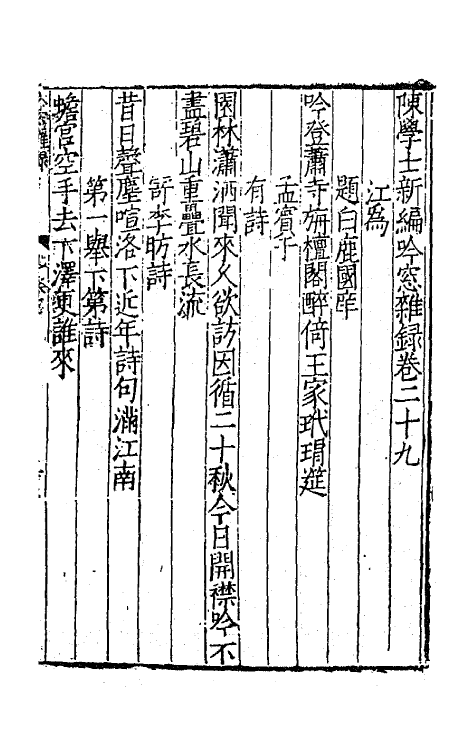 陳學士新編吟窓雜録卷二十九
江為
題白鹿國庠
吟登蕭寺栴檀閣醉倚王家玳瑁筵
孟賓于
有詩
園林瀟洒聞來久欲訪因循二十秋今日開襟吟不
盡碧山重疊水長流
評李昉詩
昔日聲塵喧洛下近年詩句滿江南
第一舉下第詩
蟾宫空手去下澤更誰來